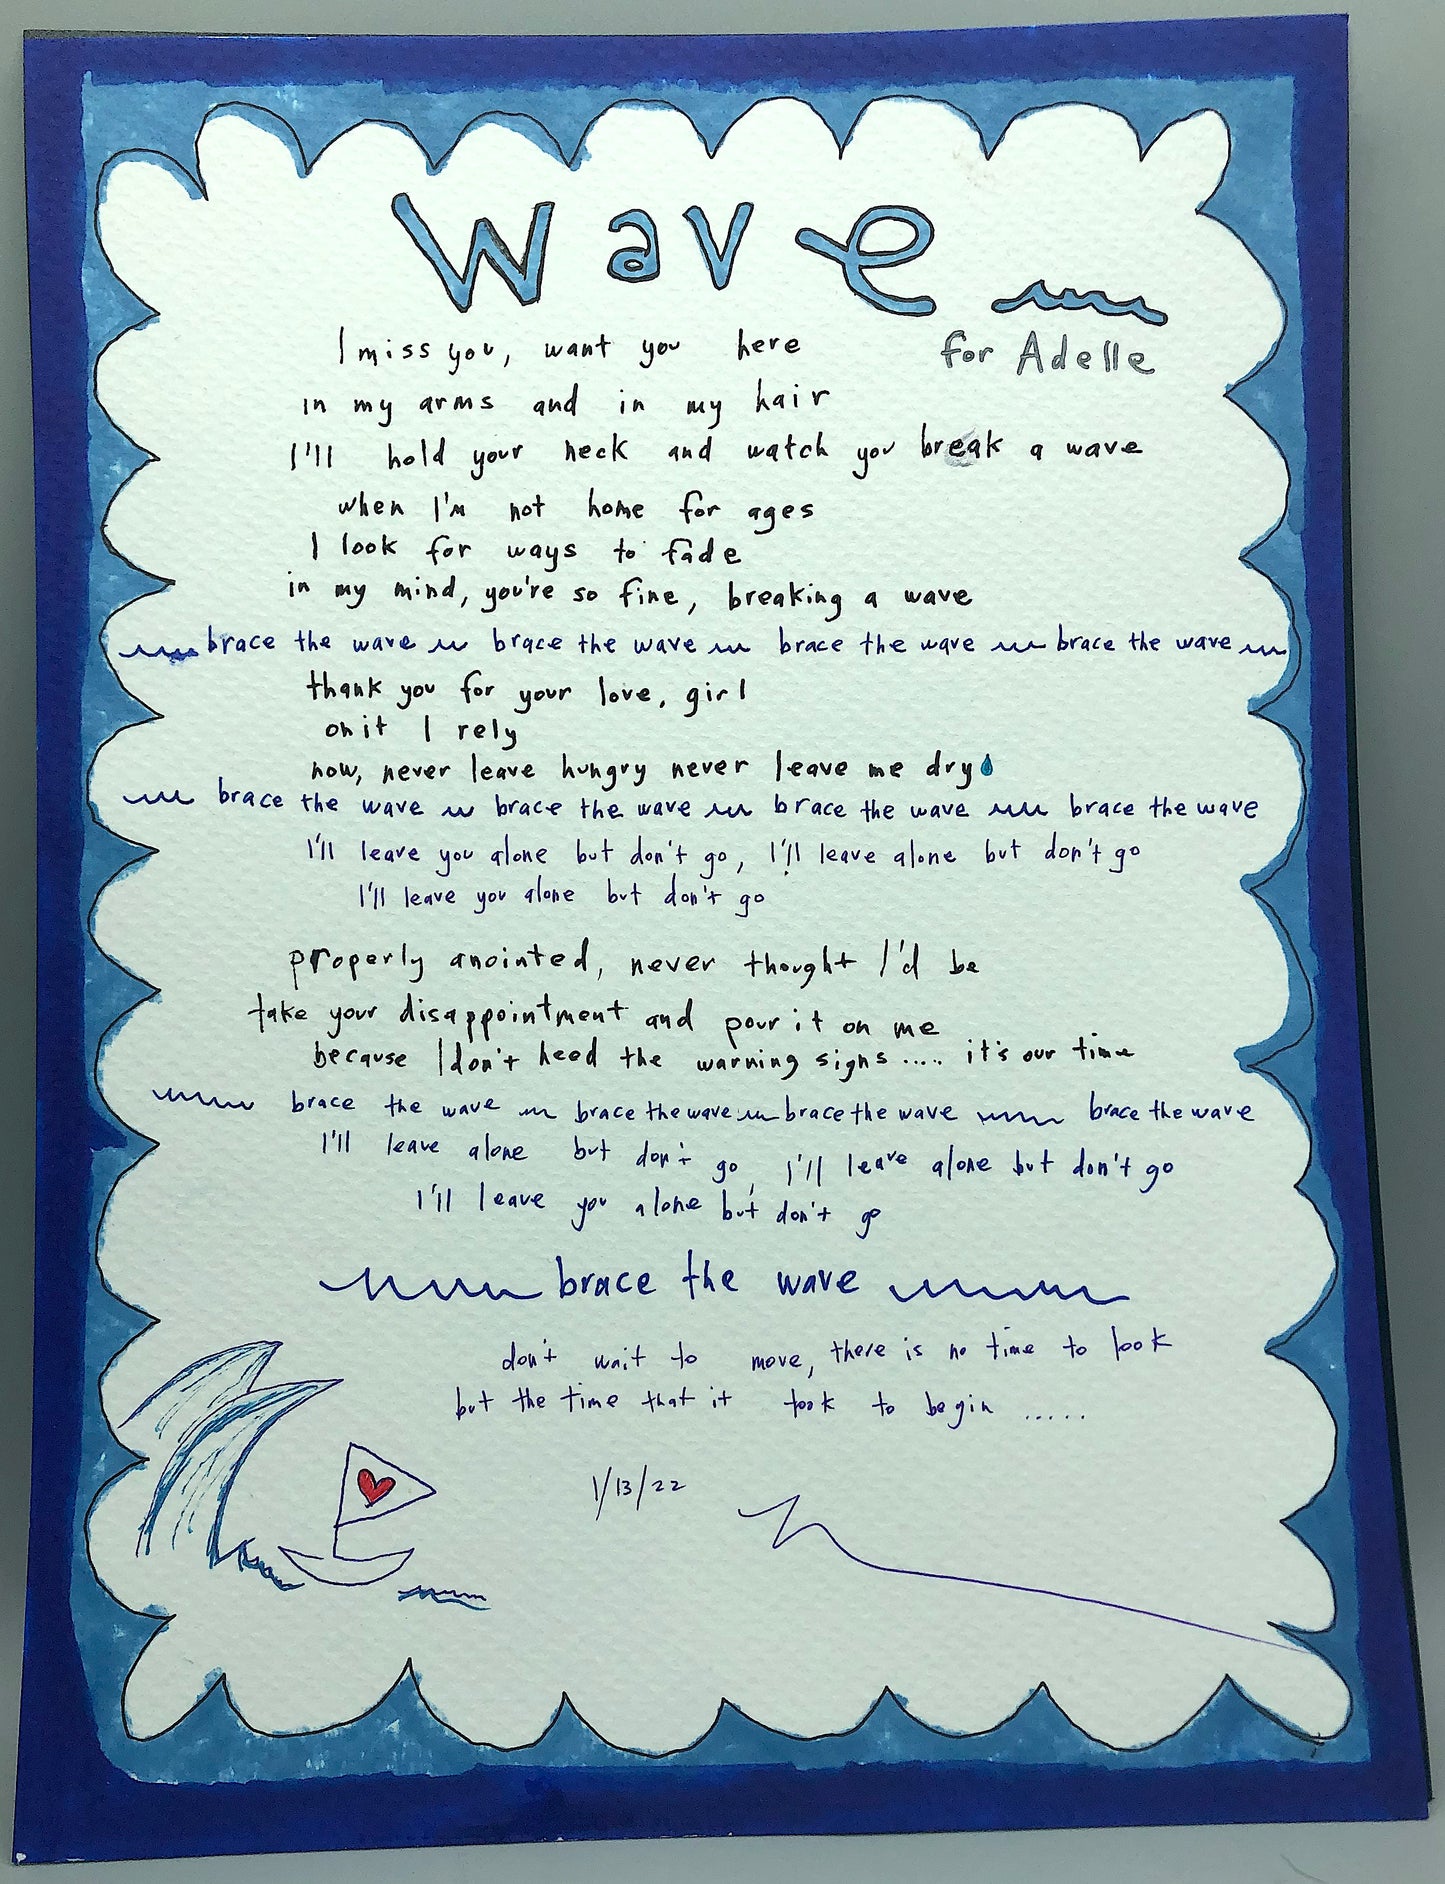 wave
for Adelle
I miss you, want you here
in my arms and in my hair
I'll hold your neck and watch you break a wave
when I'm not home for ages
I look for ways to fade
in my mind, you're so fine, breaking a wave
brace the wave brace the wave brace the wave brace the wave
thank you for your love, girl
on it I rely
now, never leave hungry never leave me dry
brace the wave brace the wave brace the wave brace the wave
I'll leave you alone but don't go, I'll leave alone but don't go
I'll leave you alone but don't go
properly anointed, never thought I'd be
take your disappointment and pour it on me
because I don't heed the warning signs..... it's our time
brace the wave brace the wave brace the wave brace the wave
I'll leave alone but don't go, I'll leave alone but don't go
I'll leave you alone but don't go
brace the wave
don't wait to move, there is no time to look
but the time that it took to begin .....
1/13/22